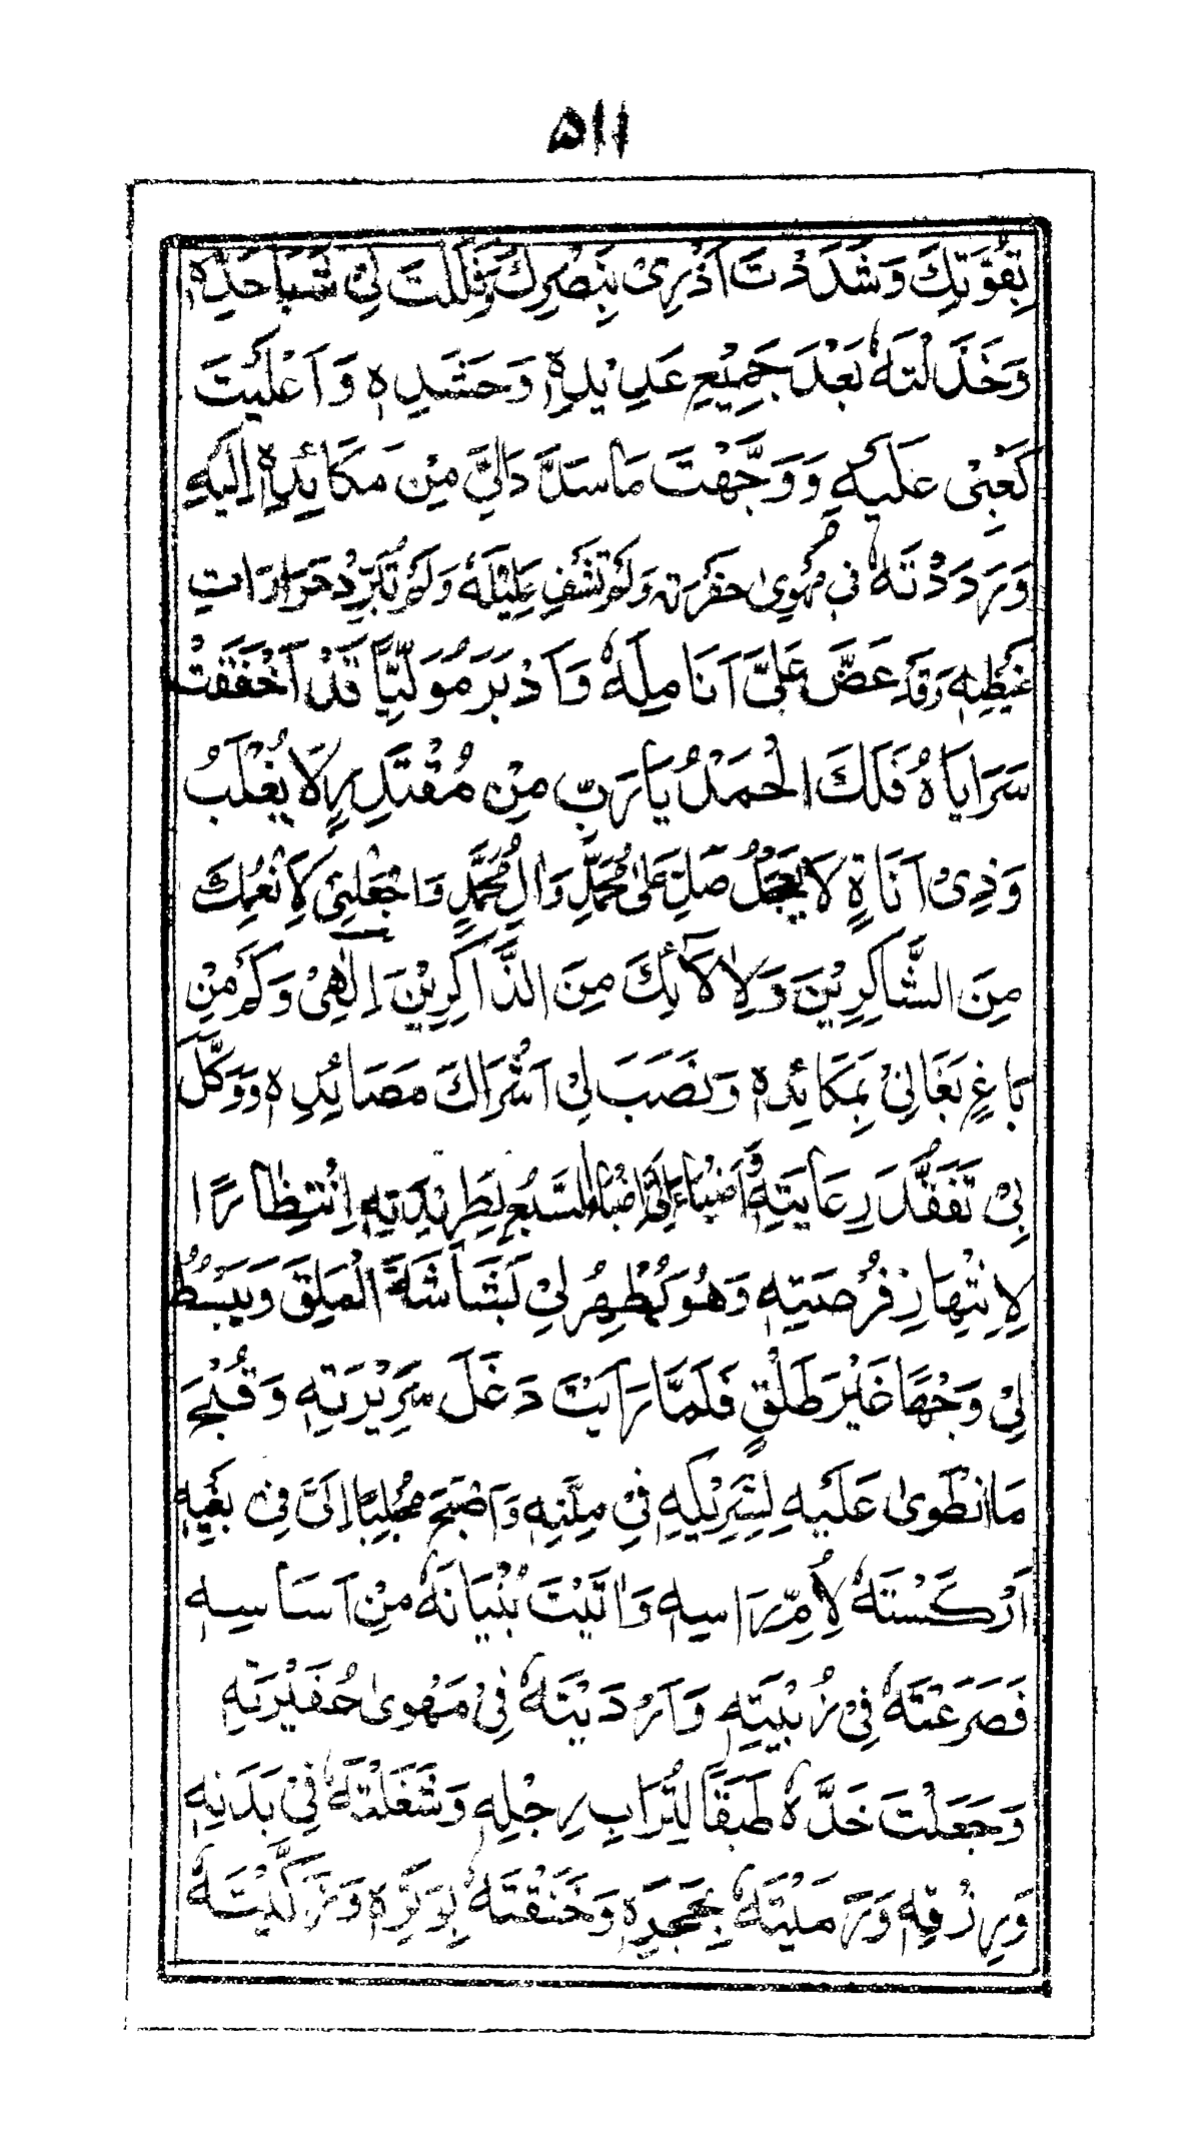 ۵۱۱
بِقُوَّتِكَ وَشَدَدْتَ اَزْرِىْ بِنَصْرِكَ وَفَلَلْتَ لِىْ شَبَا حَدِّهٖ
وَخَذَلْتَهٗ بَعْدَ جَمِيْعِ عَدِيْدِهٖ وَحَشَدِهٖ وَاَعْلَيْتَ
كَعْبِىْ عَلَيْهِ وَوَجَّهْتَ مَا سَدَّدَ اِلَىَّ مِنْ مَكَائِدِهٖ اِلَيْهِ
وَرَدَدْتَهٗ فِى مَهْوِىٰ حُفْرَتِهٖ وَلَمْ تَشْفِ غَلِيْلَهٗ وَلَمْ تُبَرِّدْ حَرَارَاتِ
غَيْظِهٖ وَقَدْ عَضَّ عَلَىَّ اَنَامِلَهٗ وَاَدْبَرَ مُوَلِّيًا قَدْ اَخْفَقَتْ
سَرَايَاهُ فَلَكَ الْحَمْدُ يَارَبِّ مِنْ مُقْتَدِرٍ لَا يُغْلَبُ
وَذِىْ اَنَاةٍ لَا يَعْجَلُ صَلِّ عَلٰى مُحَمَّدٍ وَاٰلِ مُحَمَّدٍ وَاجْعَلْنِىْ لِاَنْعُمِكَ
مِنَ الشَّاكِرِيْنَ وَلِاٰلَائِكَ مِنَ الذَّاكِرِيْنَ اِلٰهِىْ وَكَمْ مِنْ
بَاغٍ بَغَانِىْ بِمَكَائِدِهٖ وَنَصَبَ لِىْ اَشْرَاكَ مَصَائِدِهٖ وَوَكَّلَ
بِىْ تَفَقُّدَ رِعَايَتِهٖ وَاَضْبَاءَ اِلَىَّ اِضْبَاءَ السَّبُعِ لِطَرِيْدَتِهٖ اِنْتِظَارًا
لِاِنْتِهَازِ فُرْصَتِهٖ وَهُوَ يُظْهِرُ لِىْ بَشَاشَةَ الْمَلِقِ وَيَبْسُطُ
لِىْ وَجْهًا غَيْرَ طَلْقٍ فَلَمَّا رَاَيْتَ دَغَلَ سَرِيْرَتِهٖ وَقُبْحَ
مَا انْطَوٰى عَلَيْهِ لِشَرِيْكِهٖ فِىْ مِلَّتِهٖ وَاَصْبَحَ مُجْلِبًا اِلَىَّ فِىْ بَغْيِهٖ
اَرْكَسْتَهٗ لِاُمِّ رَاسِهٖ وَاَتَيْتَ بُنْيَانَهٗ مِنْ اَسَاسِهٖ
فَصَرَعْتَهٗ فِىْ زُبْيَتِهٖ وَاَرْدَيْتَهٗ فِىْ مَهْوىٰ حُفَيْرَتِهٖ
وَجَعَلْتَ خَدَّهٗ طَبَقًا لِتُرَابِ رِجْلِهٖ وَشَغَلْتَهٗ فِىْ بَدَنِهٖ
وَرِزْقِهٖ وَرَمَيْتَهٗ بِحَجَرِهٖ وَخَنَقْتَهٗ بِوَتَرِهٖ وَذَكَّيْتَهٗ